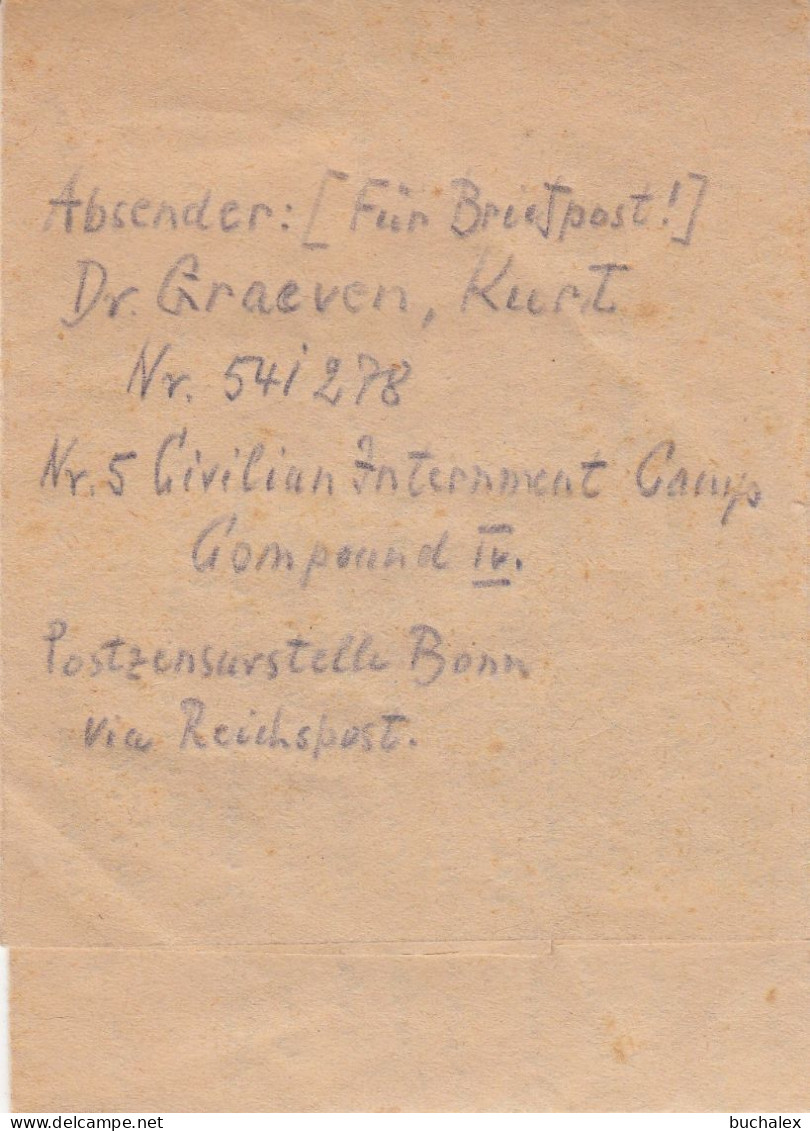 Absender: [Für Briefpost!]
Dr. Graeven, Kurt
Nr. 541278
Nr. 5 Civilian Internment Camp
Compound IV.
Postzensurstelle Bonn
via Reichspost.
buchalex